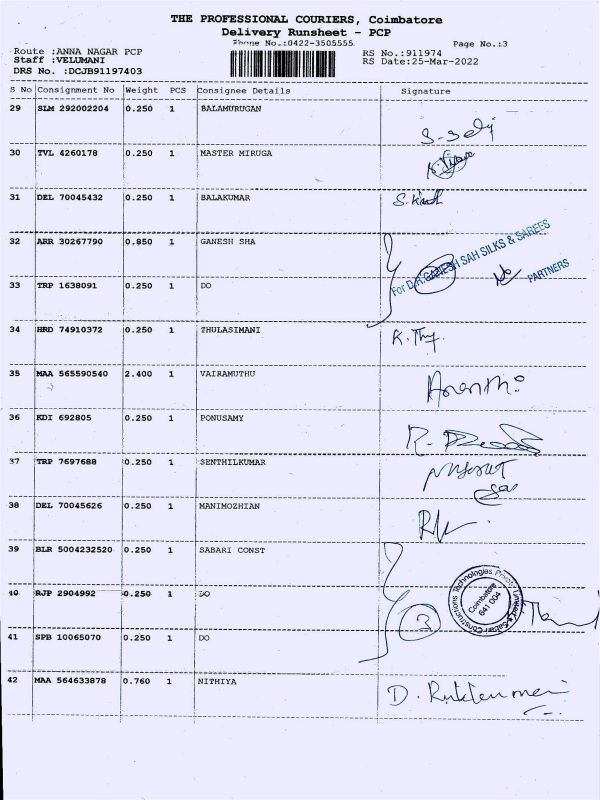 THE PROFESSIONAL COURIERS, Coimbatore
Delivery Runsheet - PCP
Phone No.:0422-3505555
Page No.:3
Route :ANNA NAGAR PCP
RS No.:911974
Staff :VELUMANI
RS Date:25-Mar-2022
DRS No. :DCJB91197403
S No Consignment No Weight PCS Consignee Details Signature
29 SLM 292002204 0.250 1 BALAMURUGAN
30 TVL 4260178 0.250 1 MASTER MIRUGA
31 DEL 70045432 0.250 1 BALAKUMAR
32 ARR 30267790 0.850 1 GANESH SHA
For D.R.GANESH SAH SILKS & SAREES
PARTNERS
33 TRP 1638091 0.250 1 DO
34 HRD 74910372 0.250 1 THULASIMANI
K. Thy
35 MAA 565590540 2.400 1 VAIRAMUTHU
36 KDI 692805 0.250 1 PONUSAMY
37 TRP 7697688 0.250 1 SENTHILKUMAR
38 DEL 70045626 0.250 1 MANIMOZHIAN
39 BLR 5004232520 0.250 1 SABARI CONST
40 RJP 2904992 0.250 1 DO
3
Coimbatore
641 004
41 SPB 10065070 0.250 1 DO
42 MAA 564633878 0.760 1 NITHIYA